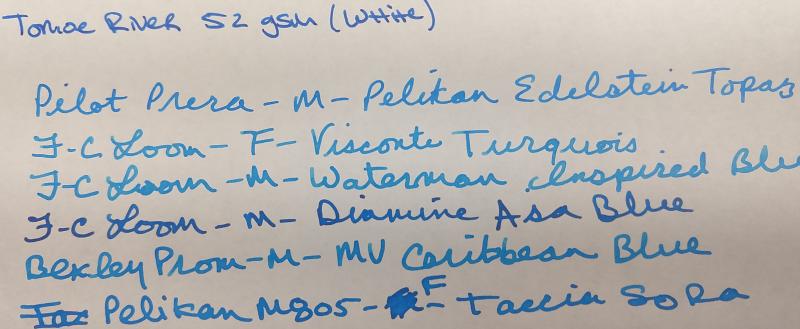 Tomoe River 52 gsm (White)
Pilot Prera - M - Pelikan Edelstein Topaz
F-C Loom - F - Visconte Turquois
F-C Loom - M - Waterman Inspired Blue
F-C Loom - M - Diamine Asa Blue
Bexley Prom - M - MV Caribbean Blue
Pelikan M805 - F - Taccia SoRa